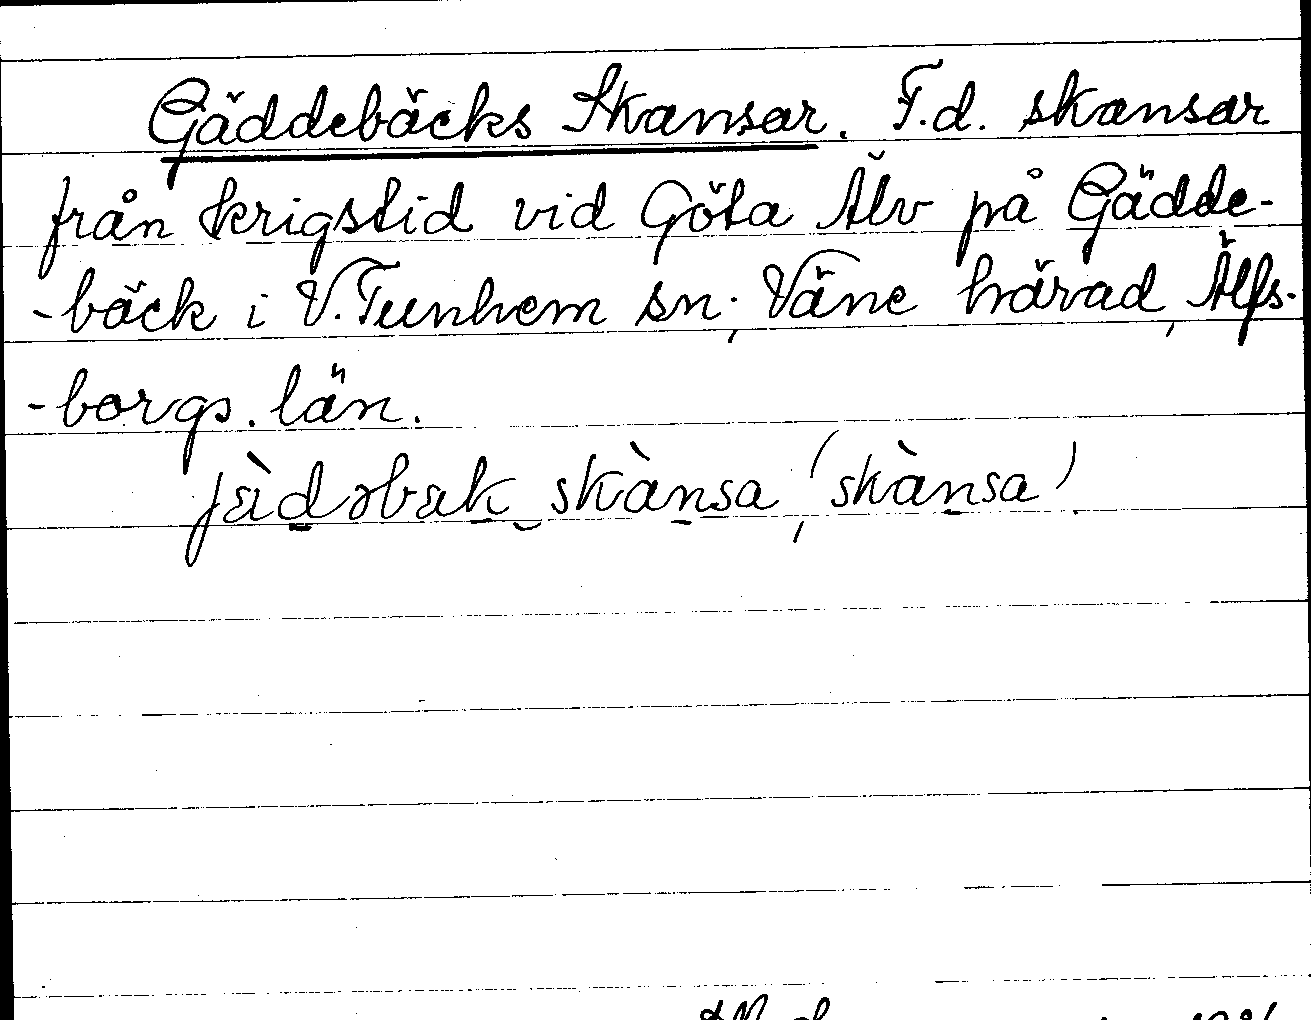 Gäddebäcks Skansar. F.d. skansar
från krigstid vid Göta Älv på Gädde-
-bäck i V. Tunhem sn; Väne härad, Älfs-
-borgs. län.
jàdəbak skànsa, (skànsa)